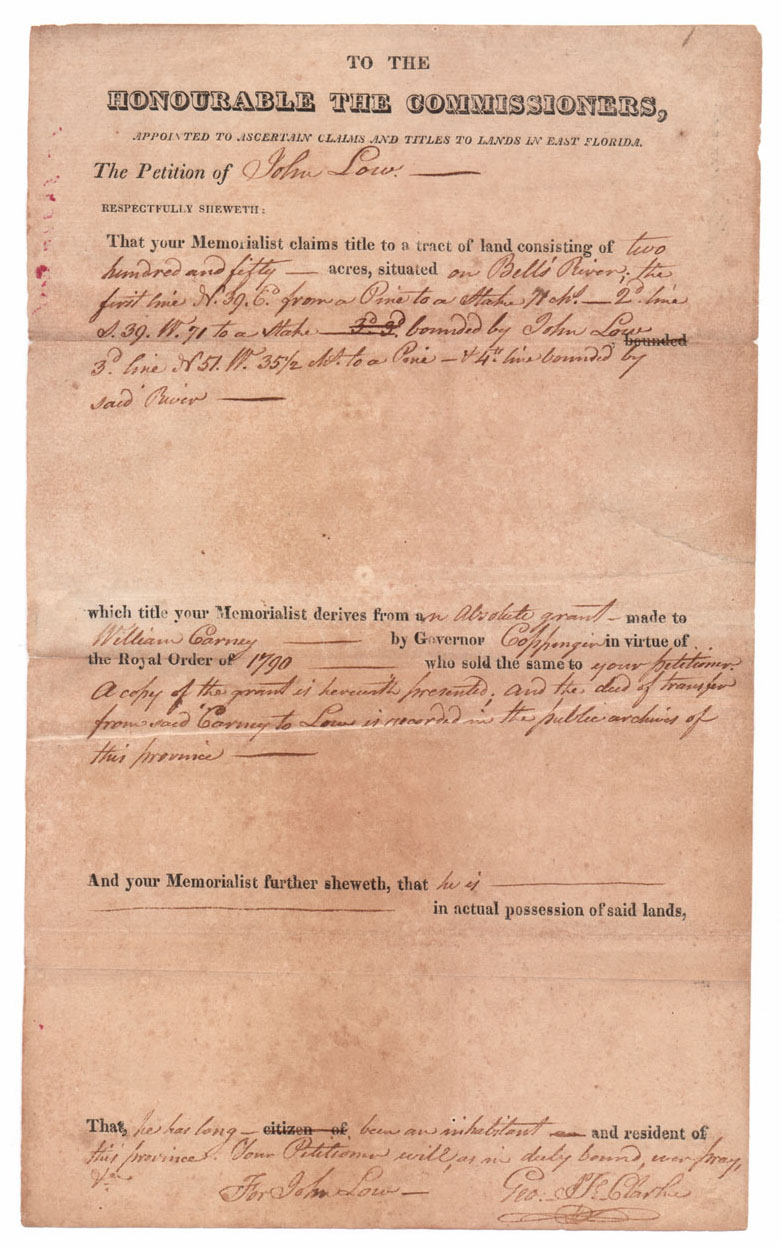 TO THE
HONOURABLE THE COMMISSIONERS,
APPOINTED TO ASCERTAIN CLAIMS AND TITLES TO LANDS IN EAST FLORIDA.
The Petition of John Low. —
RESPECTFULLY SHEWETH:
That your Memorialist claims title to a tract of land consisting of two
hundred and fifty — acres, situated on Bell's River; the
first line N. 39. Ed. from a Pine to a Stake 71 chs. — 2d. line
S. 39. W. 71 to a Stake — 3d. 3d. bounded by John Low
bounded
3d line N 51. W. 35 1/2 chs. to a Pine — & 4th line bounded by
said River —
which title your Memorialist derives from an absolute grant — made to
William Carney — by Governor Coppenger in virtue of
the Royal Order of 1790 — who sold the same to your petitioner.
A copy of the grant is herewith presented; and the deed of transfer
from said Carney to Low is recorded in the public archives of
this province —
And your Memorialist further sheweth, that he is —
— in actual possession of said lands,
That, he has long — citizen of been an inhabitant and resident of
this province. Your Petitioner will, as in duty bound, ever pray,
&ca
For John Low — Geo: J F. Clarke